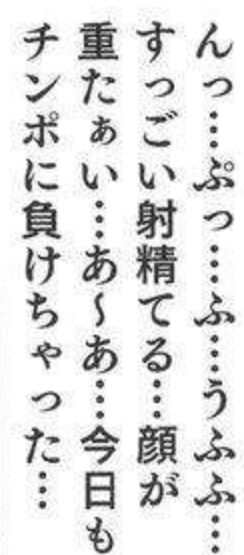 んっ…ぷっ…ふ…うふふ…
すっごい射精てる…顔が
重たぁい…あ～あ…今日も
チンポに負けちゃった…